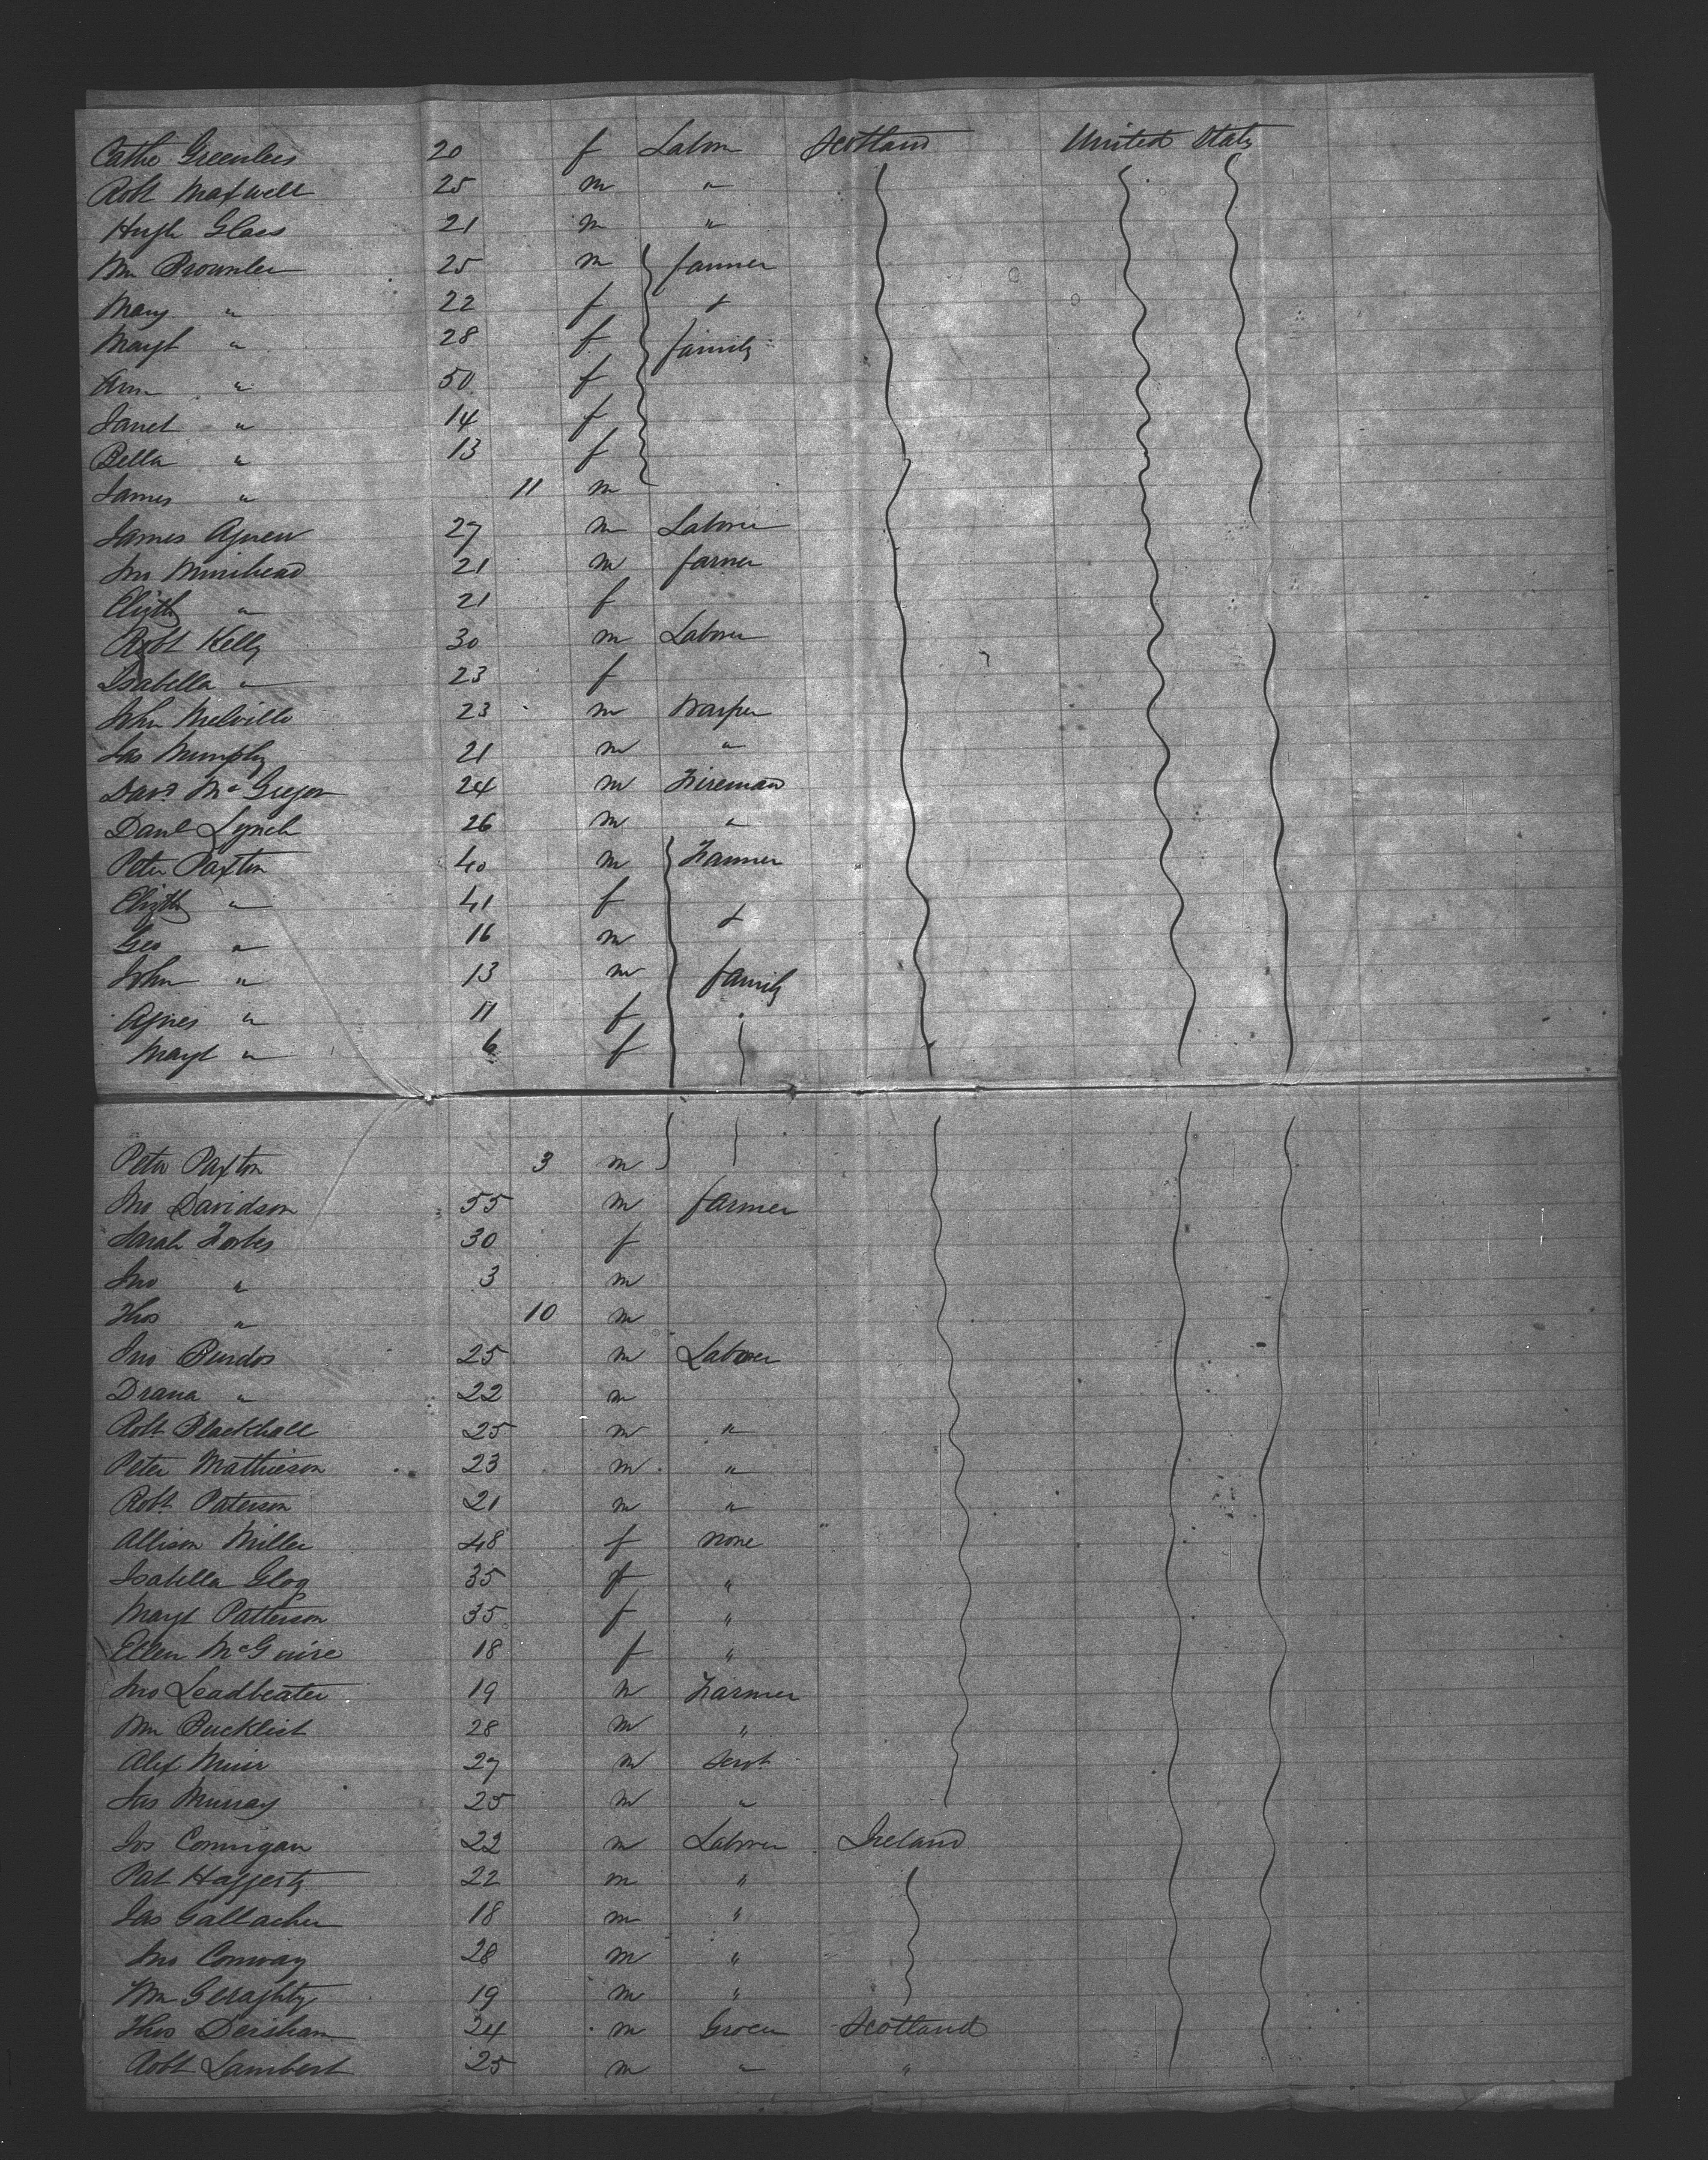 Cathe Greenlees 20 f Labor Scotland United States
Robt Maxwell 25 m "
Hugh Glass 21 m "
Wm Brownlee 25 m farmer
Mary " 22 f &
Margt " 28 f family
Ann " 50 f
Janet " 14 f
Bella " 13 f
James " 11 m
James Agnew 27 m Laborer
Jno Muirhead 21 m farmer
Elizth " 21 f
Robt Kelly 30 m Laborer
Isabella " 23 f
John Melville 23 m Warper
Jas Murphy 21 m "
Davd McGregor 24 m Fireman
Danl Lynch 26 m "
Peter Paxton 40 m Farmer
Elizth " 41 f &
Geo " 16 m
John " 13 m family
Agnes " 11 f
Margt " 6 f
Peter Paxton 3 m
Jno Davidson 55 m farmer
Sarah Forbes 30 f
Jno " 3 m
Thos " 10 m
Jno Purdos 25 m Laborer
Drana " 22 m
Robt Blackhall 25 m "
Peter Mathieson 23 m "
Robt Paterson 21 m "
Allison Miller 48 f none
Isabella Glog 35 f "
Margt Patterson 35 f "
Ellen McGuire 18 f "
Jno Leadbeater 19 m Farmer
Wm Bucklist 28 m "
Alex Muir 27 m Servt
Jas Murray 25 m "
Jos Connigan 22 m Laborer Ireland
Pat Haggerty 22 m "
Jas Gallacher 18 m "
Jno Conway 28 m "
Wm Geraghty 19 m "
Thos Dersham 24 m Grocer Scotland
Robt Lambert 25 m " "